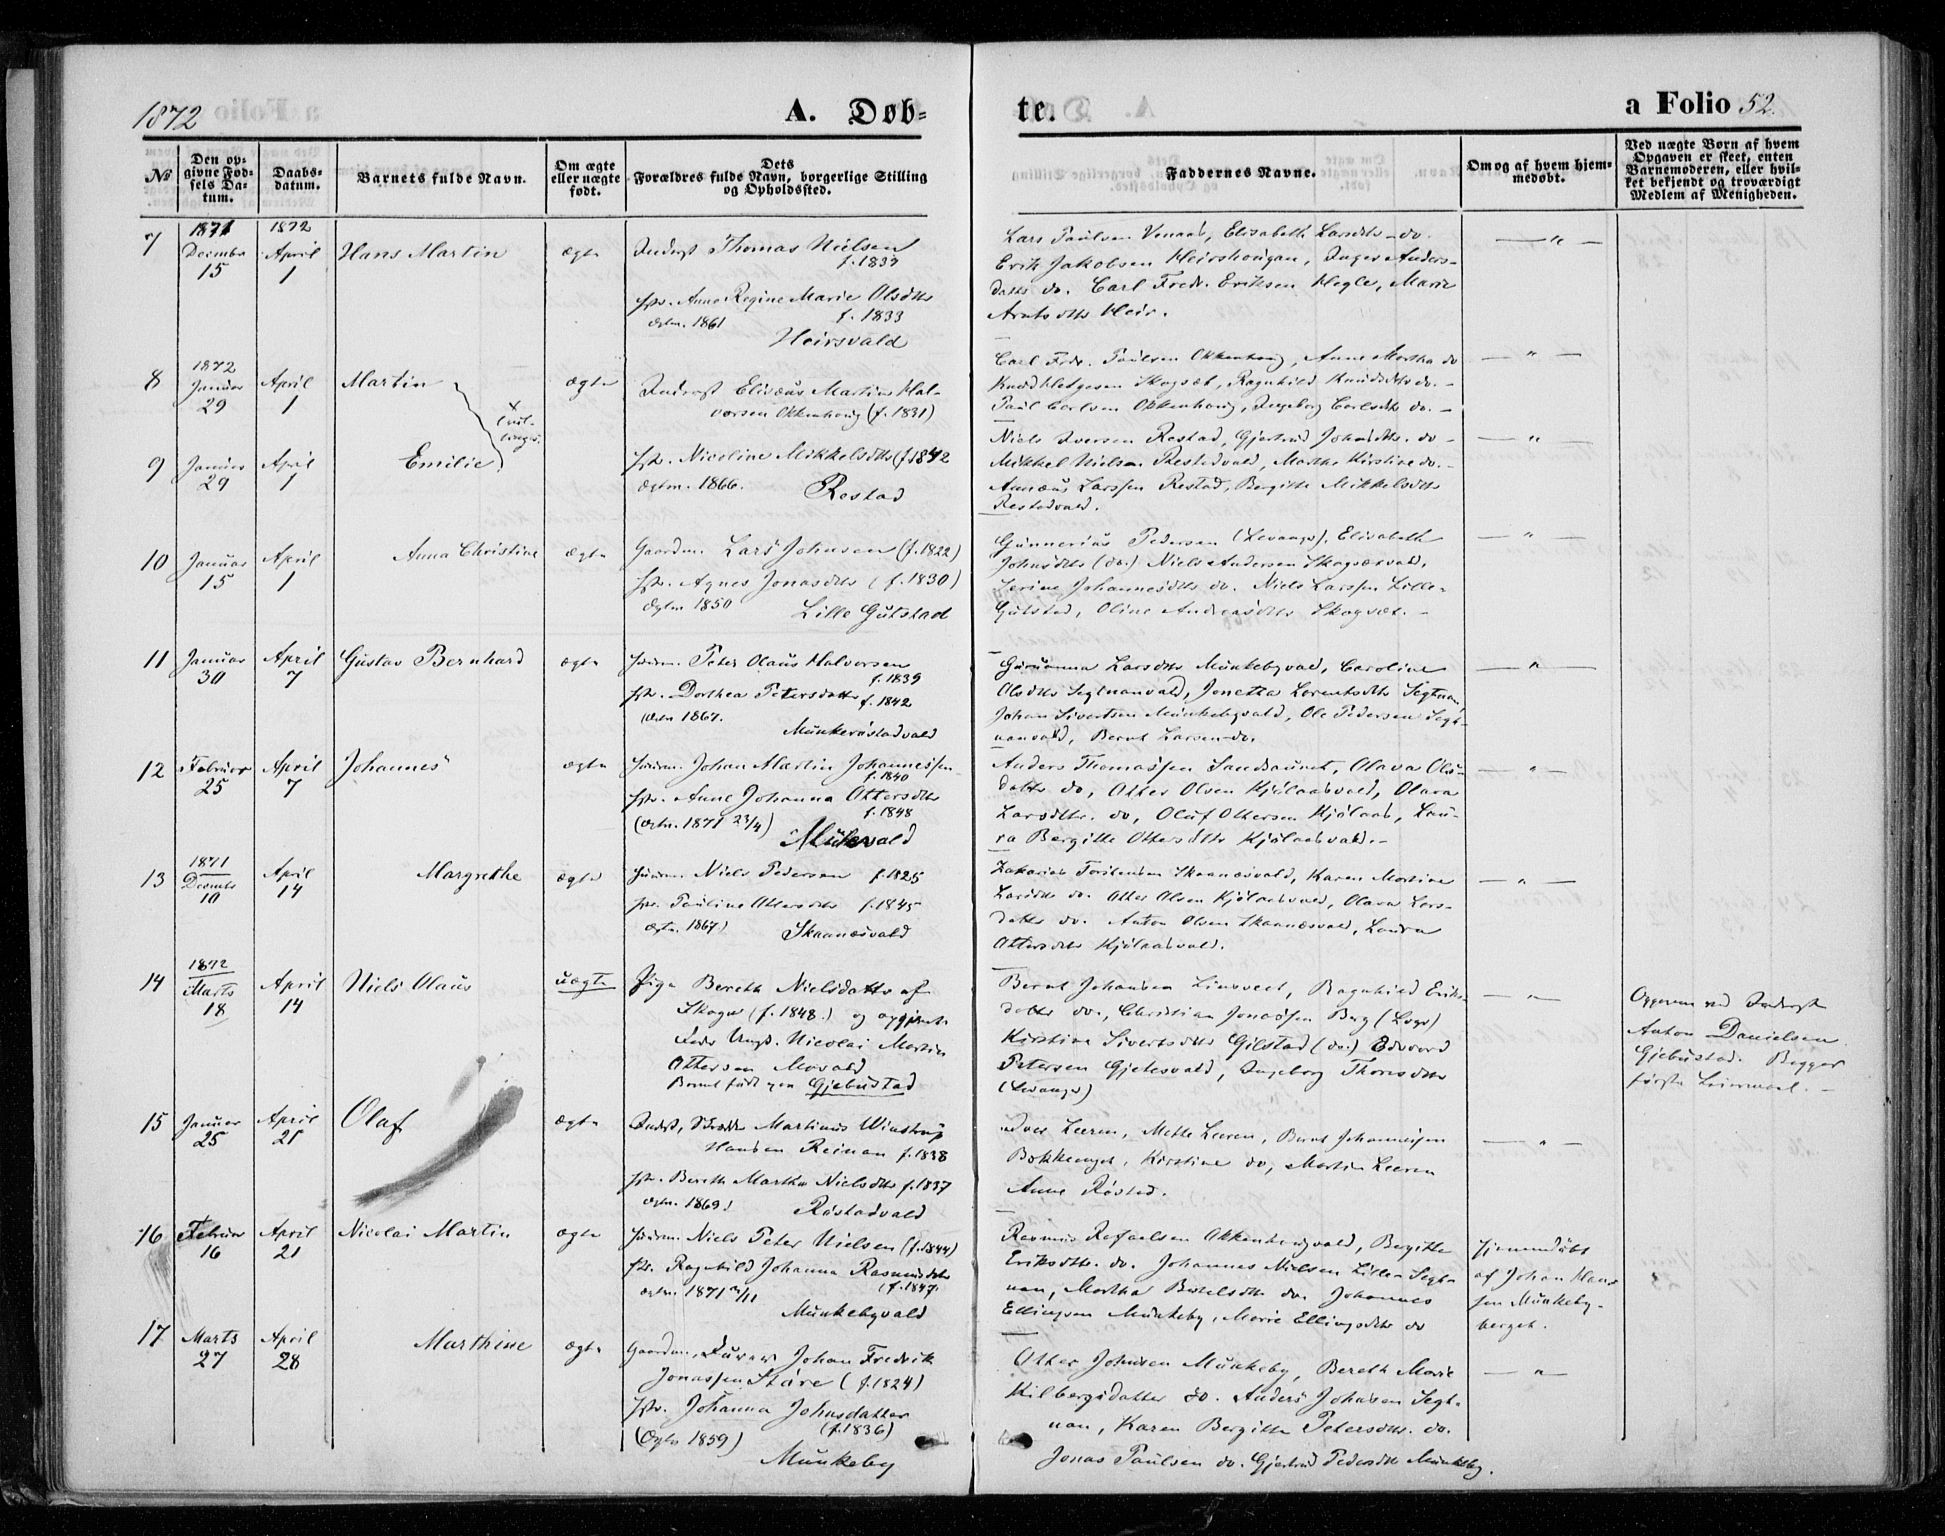 1872
A. Døb-
te.
a Folio 52.
No
Den op-
givne Fød-
sels Da-
tum.
Daabs-
datum.
Barnets fulde Navn.
Om ægte
eller uægte
født.
Dets
Forældres fulde Navn, borgerlige Stilling
og Opholdssted.
Faddernes Navne.
Om og af hvem hjem-
medøbt.
Ved uægte Børn af hvem
Opgaven er skeet, enten
Barnemoderen, eller hvil-
ket bekjendt og troværdigt
Medlem af Menigheden.
7
1871
Decembr
15
1872
April
1
Hans Martin
ægte
Inderst Thomas Nielsen
f. 1839
Anne Regine Marie Olsdtr
f. 1833
ægtev. 1861
Heirsvald
Lars Paulsen Venaas, Elisabeth Larsdtr do.
Erik Jakobsen Heirshougan, Inger Anders-
datter do. Carl Fredr. Eriksen Hegle, Marie
Arntsdtr Heir.
— " —
8
1872
Januar
29
April
1
Martin
ægte
Inderst Elisæus Martin Hal-
vorsen Okkenhoug (f. 1831)
Carl Fredr. Paulsen Okkenhoug, Anne Martha do
Knud Helgesen Skogset, Ragnhild Knudsdtr do. -
Paul Carlsen Okkenhoug, Ingeborg Carlsdtr do. -
— " —
x
Tvil-
linger.
9
Januar
29
April
1
Emilie
Nicoline Mikkelsdtr (f. 1842
ægtev. 1866.
Restad
Niels Iversen Restad, Gjertrud Johnsdtr. do -
Mikkel Nielsen Restadvald, Marthe Kirstine do. -
Annæus Larssen Restad, Bergitte Mikkelsdtr
Restadvald.
— " —
10
Januar
15
April
1
Anna Christine
ægte
Gaardm. Lars Johnsen (f. 1822)
Agnes Jonasdtr (f. 1830)
ægtev 1850
Lille Gutstad
Gunnerius Pedersen (Levanger). Elisabeth
Johnsdtr (do.) Niels Andersen Skogsetvald,
Serine Johannesdtr do. Niels Larssen Lille-
Gutstad, Oline Andreasdtr Skogset. -
— " —
11
Januar
30
April
7
Gustav Bernhard
ægte
Huusm. Peter Olaus Halvorsen
f. 1839
Dorthea Petersdatter f. 1842
(ægtev 1867.
Munkerøstadvald
Larsdtr Munkebyvald, Caroline
Olsdtr Segtnanvald, Jonetta Lorentsdtr Segtnan,
Johan Sivertsen Munkebyvald, Ole Pedersen Segt-
nanvald, Bernt Larsen do.
— " —
12
Februar
25
April
7
Johannes
ægte
Huusm. Johan Martin Johannessen
f. 1840
Anne Johanna Ottersdtr
f. 1848
(ægtev. 1871 23/4)
Anders Thomassen Sandaunet, Olava Ols-
datter do, Otter Olsen Kjølaasvald, Olava
Larsdtr. do, Oluf Ottersen Kjølaas, Lau-
ra Bergitte Ottersdtr Kjølaasvald. -
— " —
13
1871
Decembr
10
April
14
Margrethe
ægte
Huusm. Niels Pedersen f. 1825
Pauline Ottersdtr f. 1845
ægtev. 1867)
Skaanesvald
Zakarias Torstensen Skaanesvald, Karen Martine
Larsdtr do. Otter Olsen Kjølaasvald, Olava Lars-
datter do. Anton Olsen Skaanesvald, Laura
Ottersdtr Kjølaasvald.
— " —
14
1872
Marts
18
April
14
Niels Olaus
uægte
Pige Bereth Nielsdatter af
Skogn (f. 1848.) og opgivne
Fader Ungk. Nicolai Martin
Ottersen Movald
Barnet født paa Gjebustad
Bernt Johansen Linsveet, Ragnhild Eriks-
datter do., Christian Jonassen Berg (Levgr)
Kirstine Sivertsdtr Gilstad (do.) Edvard
Petersen Gjetesvald, Ingeborg Thoresdtr
(Levanger)
— " —
Opgaven ved Inderst
Anton Danielsen
Gjebustad. Begges
første Leiermaal. -
15
Januar
25
April
21
Olaf
ægte
Inderst, Skrædder Martinus Winstrup
Hansen Reinan f. 1838
Bereth Martha Nielsdtr f. 1837
ægtev. 1869)
Røstadvald
Leeren, Mette Leeren, Bernt Johannesen
Bakkenget, Kirstine do, Martin Leeren
Anne Røstad.
— " —
16
Februar
16
April
21
Nicolai Martin
ægte
Huusm. Niels Peter Nielsen (f. 1844)
Ragnhild Johanna Rasmusdtr
(f. 1847.
ægtev. 1871
Munkebyvald
Rasmus Rafaelsen Okkenhougvald, Bergitte
Eriksdtr. do. Johannes Nielsen Lille-Segt-
nan, Martha Bertelsdtr do. Johannes
Ellingsen Munkeby, Marie Ellingsdtr do
Hjemmedøbt
af Johan Claus-
sen Munkeby-
berget.
17
Marts
27
April
28
Marthine
ægte
Gaardm. Furer Johan Fredrik
Jonassen Støre (f. 1824)
Johanna Johnsdatter
(f. 1836)
(ægtev 1859)
Munkeby
Otter Johnsen Munkeby, Bereth Marie
Kilbergsdatter do. Anders Johnsen Segt-
nan, Karen Bergitte Petersdtr. do.
Jonas Paulsen do. Gjertrud Pedersdtr Munkeby.
— " —